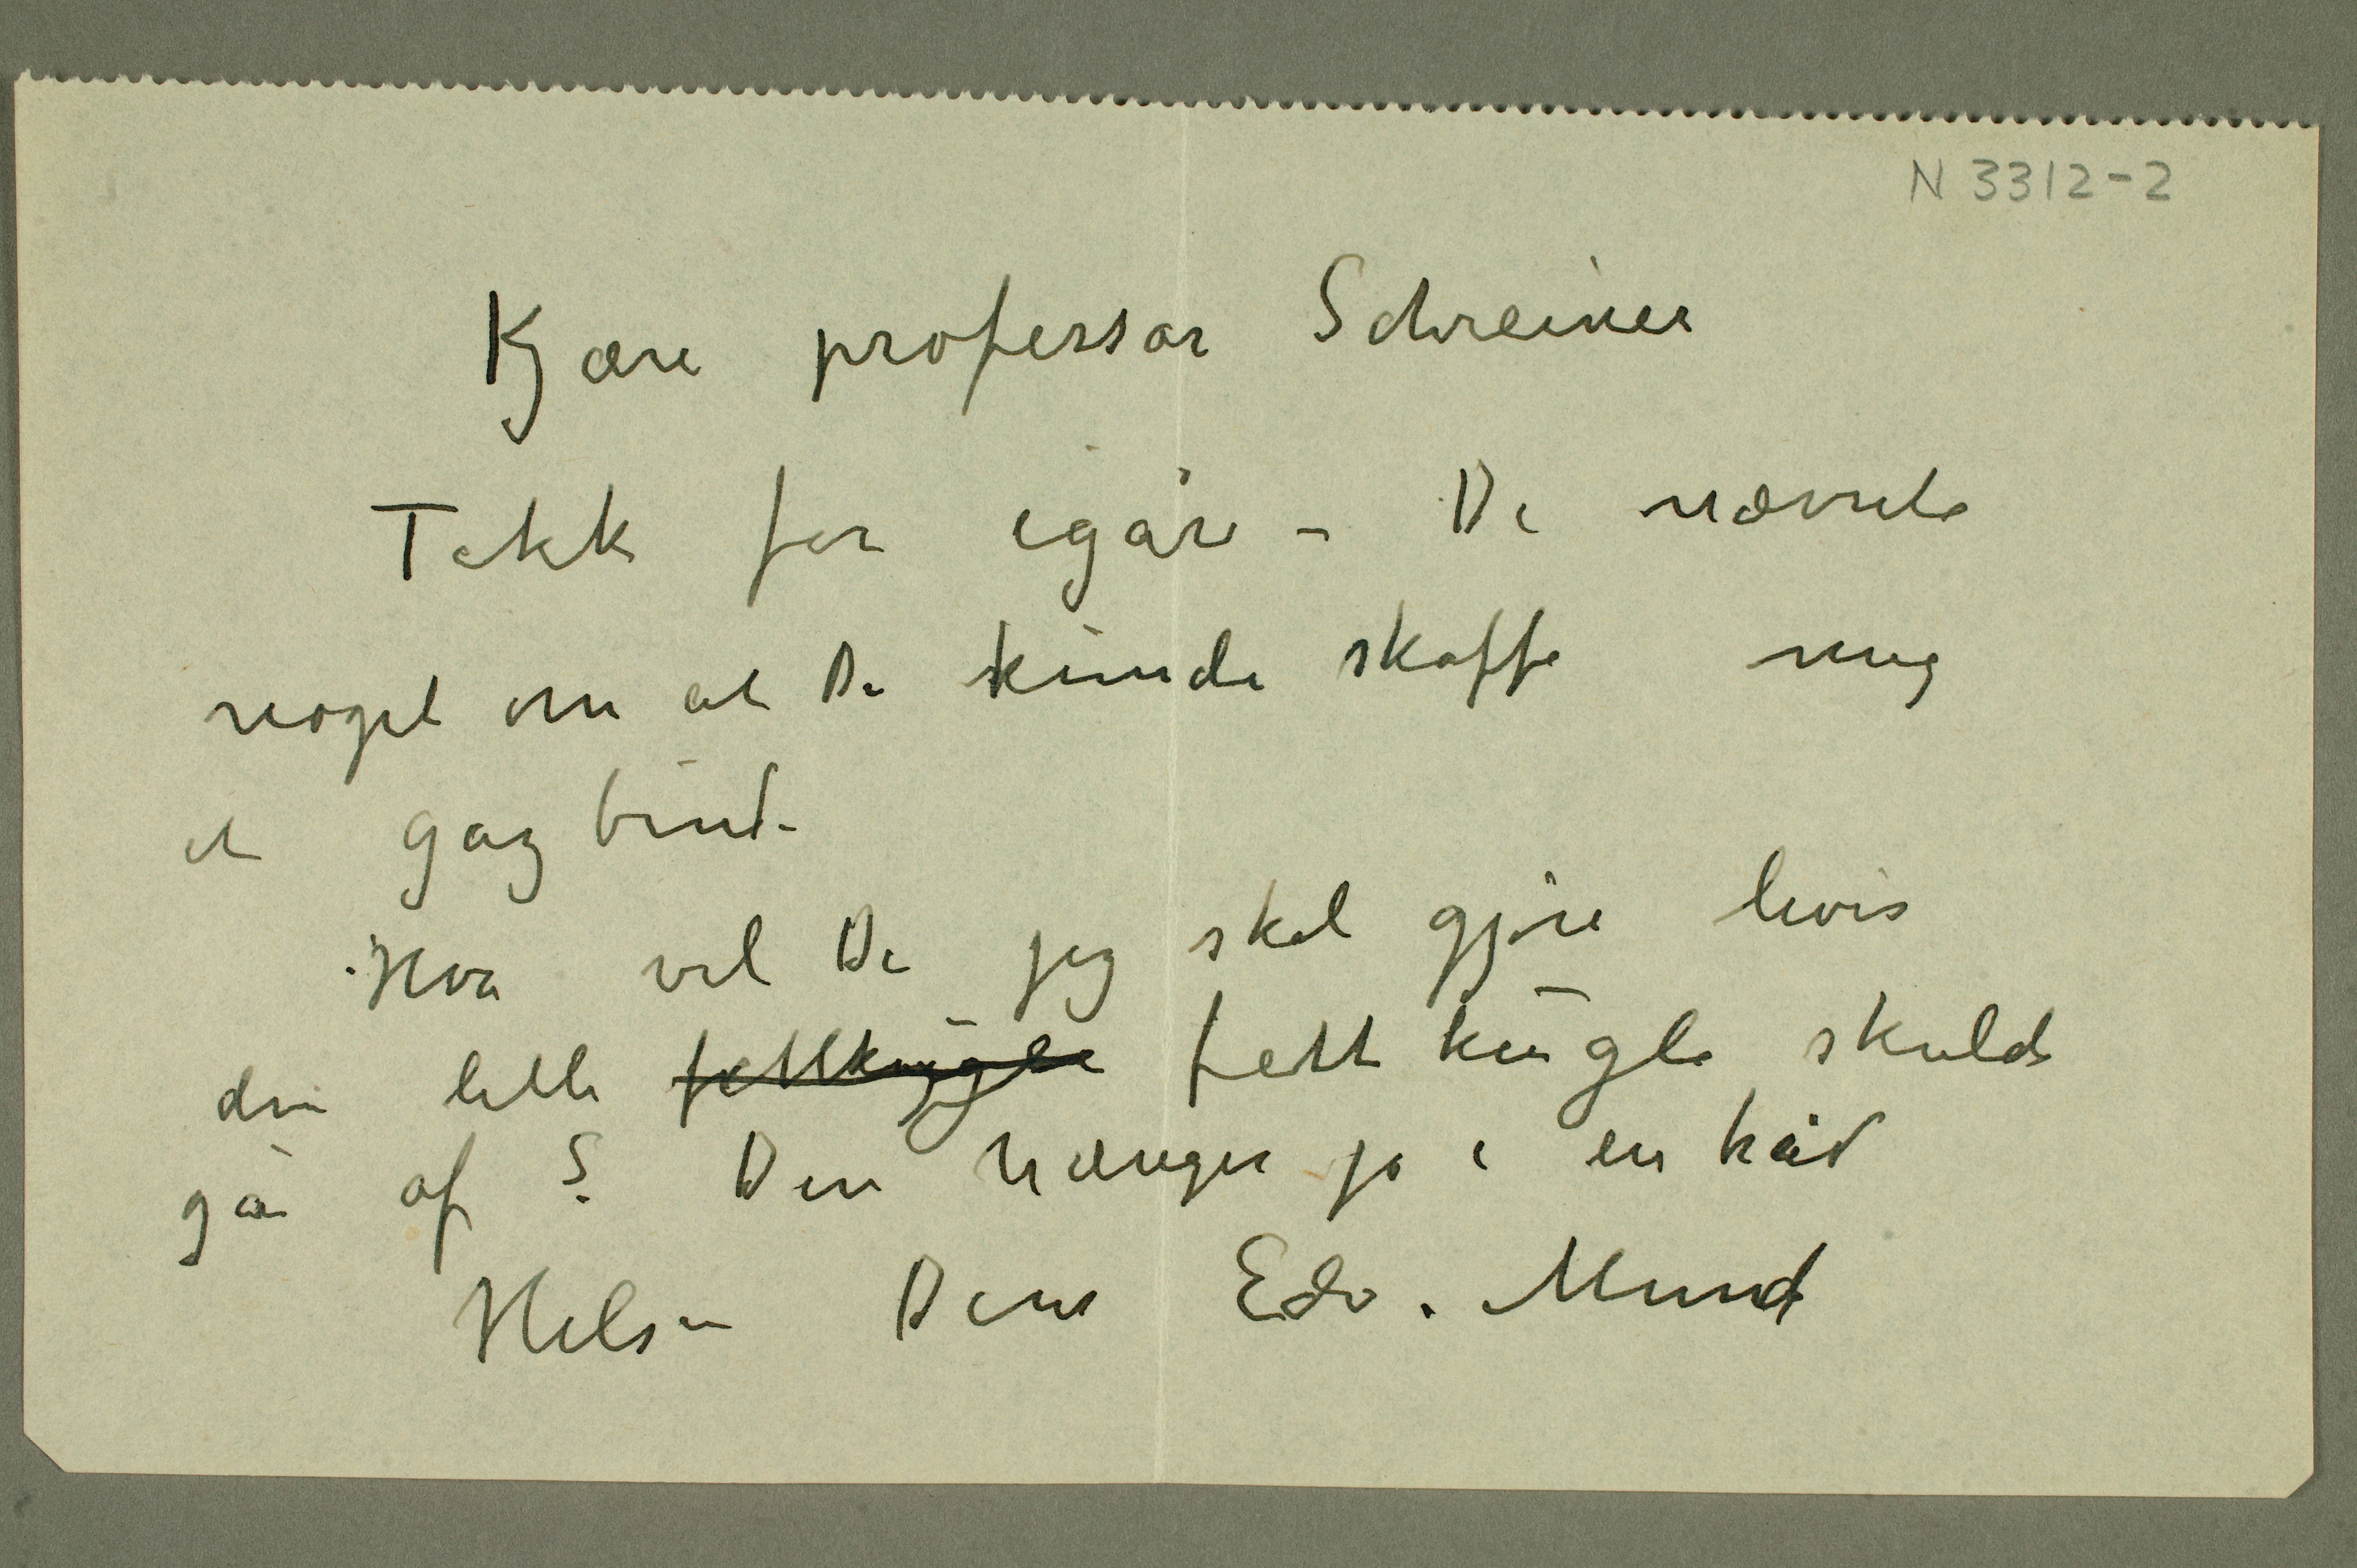 N 3312-2
Kjære professor Schreiner
Takk for igår – De nævnte
noget om at De kunde skaffe mig
et gazbind –
Hva vil De jeg skal gjøre hvis
den lille fettkugle fettkugle skulde
gå af? Den hænger jo i en tråd
Hilsen Deres Edv. Munch